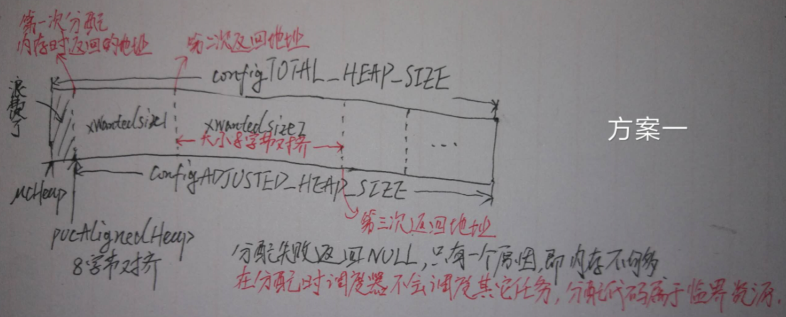 第一次分配
内存时返回的地址
第二次返回地址
configTOTAL_HEAP_SIZE
浪费了
xWantedSize1
xWantedSize2
大小8字节对齐
...
方案一
configADJUSTED_HEAP_SIZE
ucHeap
pucAlignedHeap
8字节对齐
第三次返回地址
分配失败返回NULL,只有一个原因,即内存不够
在分配时调度器不会调度其它任务,分配代码属于临界资源.